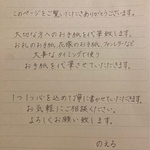 このページをご覧いただきありがとうございます。
大切な方へのお手紙を代筆致します。
お礼のお手紙、
大事なタイミングで使う
お手紙を代筆させていただきます。
1つ1つ心を込めて丁寧に書かせていただきます。
お気軽にご相談ください。
よろしくお願い致します。
のえる